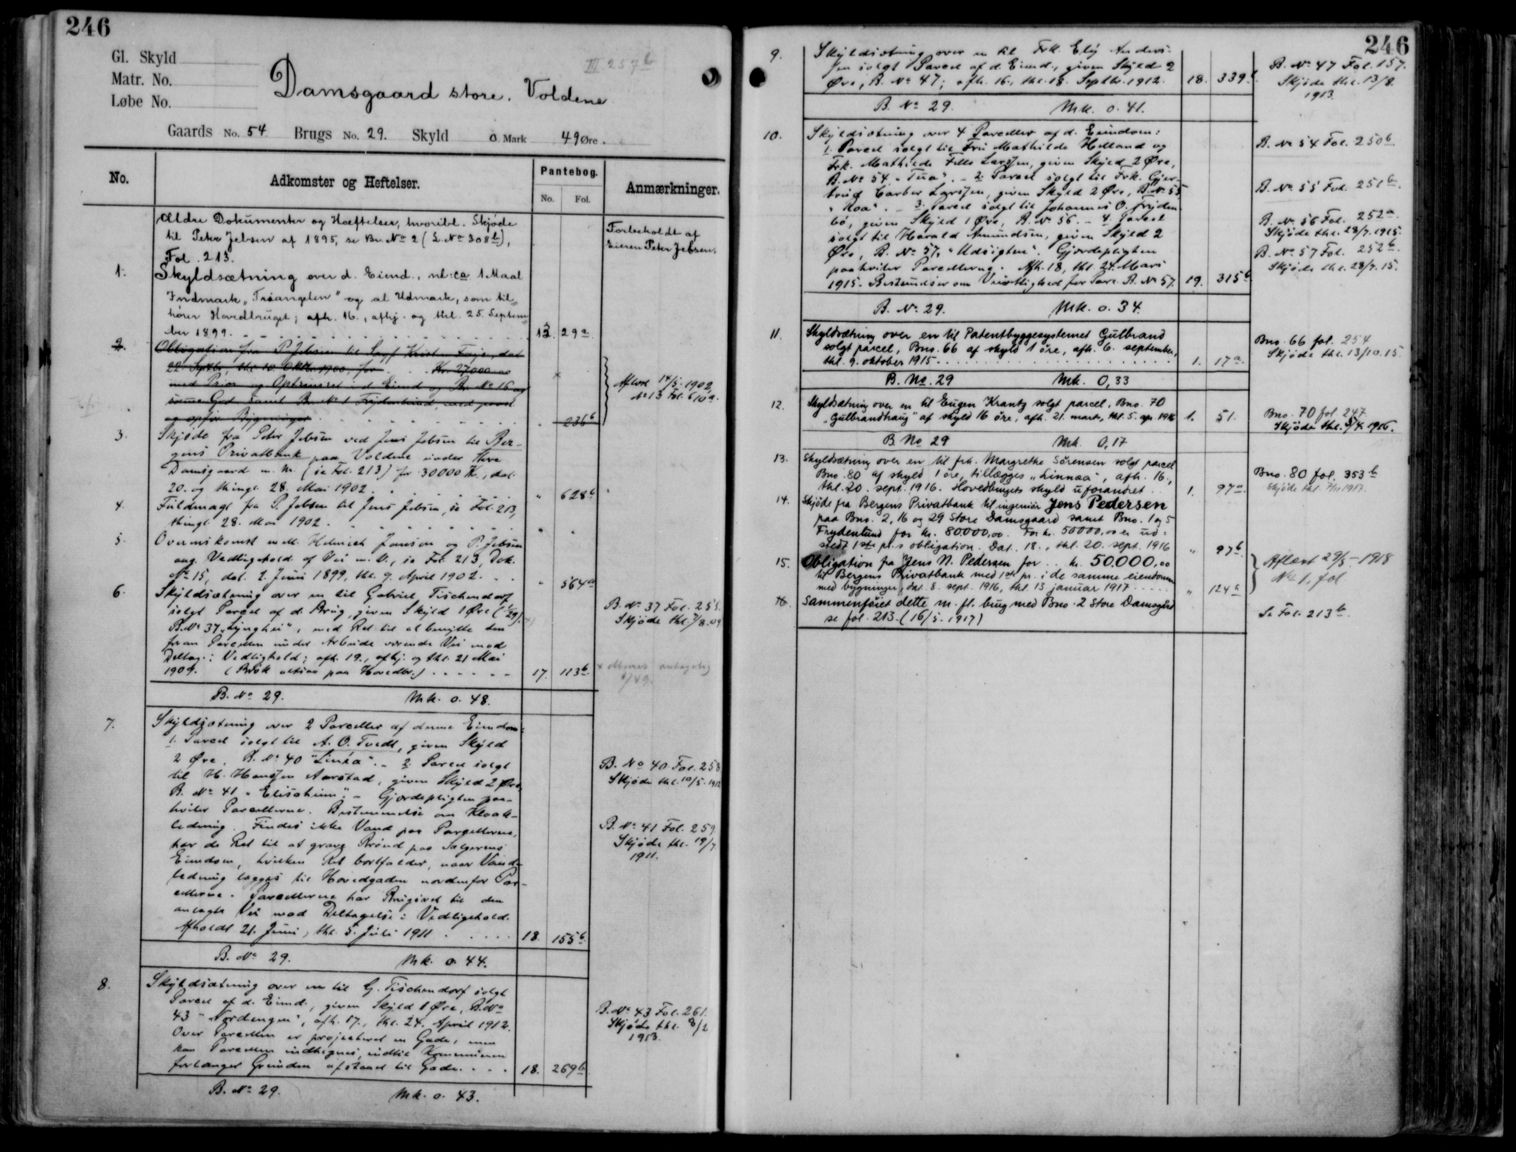 246
Gl. Skyld
Matr. No.
Løbe No.
III 257b
Damsgaard store. Voldene
Gaards No. 54 Brugs No. 29. Skyld 0 Mark 49 Øre.
No.
Adkomster og Heftelser.
Pantebog.
No. Fol.
Anmærkninger.
Ældre Dokumenter og Hæftelser, hvoribl. Skjøde
til Peter Jebsen af 1895, se Br. No 2 (L. No 308b),
Fol. 213.
Forbeholdt af
Eieren Peter Jebsen.
1. Skyldsætning over d. Eiend., nl. ca 1 Maal
Indmark, "Triangelen" og al Udmark, som til-
hører Hovedbruget; afh. 16., afhj. og thl. 25. Septem-
ber 1899. 12 29a
2. Obligation fra P. Jebsen til
Kr 27000
med Prior. og Opt.ret i d. Eiend. og Br. No 16 og
236b
Aflæst 14/5 1902
No 13 Fol. 109.
3. Skjøde fra Peter Jebsen ved Jens Jebsen til Ber-
gens Privatbank paa Voldene under Store
Damsgaard m. m. (se Fol. 213) for 30000 Kr., dat.
20. og thingl. 28. Mai 1902. " 628b
4. Fuldmagt fra P. Jebsen til Jens Jebsen, se Fol. 213,
thingl. 28. Mai 1902.
5. Overenskomst mell. Helmich Janson og P. Jebsen
ang. Vedligehold af Vei m. V., se Fol. 213, Dok.
No 15, dat. 2. Juni 1899, thl. 9. April 1902. " 564a
6. Skyldsætning over en til Gabriel Tischendorf
solgt Parcel af d. Brug, given Skyld 1 Øre
B. No 37 , med Ret til at benytte den
fram Parcellen under Arbeide værende Vei mod
Deltag. i Vedligehold; afh. 19., afhj. og thl. 21 Mai
1909. 17. 113b
B. No 37 Fol. 255.
Skjøde thl. 7/8.09
B. No 29. Mk. 0.48.
7. Skyldsætning over 2 Parceller af denne Eiendom:
1. Parcel solgt til A. O. Tvedt, given Skyld
2 Øre. B. No 40 "Linéa". - 2. Parcel solgt
til H. Hansen Aarstad, given Skyld 2 Øre,
B. No 41 "Eliseheim". - Gjerdepligten paa-
hviler Parcellerne. Bestemmelse om Kloak-
ledning. Findes ikke Vand paa Parcellerne,
har de Ret til at grave Brønd paa Sælgerens
Eiendom, hvilken Ret bortfalder, naar Vand-
ledning lægges til Hovedgaden nordenfor Par-
cellerne. Parcellerne har Brugsret til den
anlagte Vei mod Deltagelse i Vedligehold.
Afholdt 21. Juni, thl. 5. Juli 1911 18. 155b
B. No 40 Fol. 258
Skjøde thl. 10/5. 1912
B. No 41 Fol. 259
Skjøde thl. 19/7
1911.
B. No 29. Mk. 0.44.
8. Skyldsætning over en til G. Tischendorf solgt
Parcel af d. Eiend., given Skyld 1 Øre, B. No
43 "Nordengen", afh. 17., thl. 24. April 1912.
Over Parcellen er projecteret en Gade, men
kan Parcellen indhegnes, indtil Kommunen
forlanger Grunden afstaaet til Gade. 18. 269b
B. No 43 Fol. 261.
Skjøde thl. 8/2
1913.
B. No 29. Mk. 0.43.
246
9. Skyldsætning over en til Frk. Elly Ander-
sen solgt Parcel af d. Eiend., given Skyld 2
Øre, B. No 47; afh. 16., thl. 18. Septbr. 1912. 18. 339b
B. No 47 Fol. 157.
Skjøde thl. 13/8.
1913.
B. No 29. Mk. 0.41.
10. Skyldsætning over 4 Parceller af d. Eiendom:
1. Parcel solgt til Fru Mathilde Helland og
Frk. Mathilde Larssen, given Skyld 2 Øre,
B. No 54 "Tua". - 2. Parcel solgt til Frk. Gjer-
trud Larssen, given Skyld 2 Øre, B. No 55
"Roa". - 3. Parcel solgt til Johannes O.
given Skyld 1 Øre, B. No 56. - 4. Parcel
solgt til Harald Amundsen, given Skyld 2
Øre, B. No 57, "Udsigten". Gjerdepligten
paahviler Parcellerne. Afh. 18., thl. 24. Mars
1915. Bestemmelser om Veirettighed for Parc. B. No 57. 19. 315b
B. No 54 Fol. 250b.
B. No 55 Fol. 251b.
B. No 56 Fol. 252a.
Skjøde thl. 28/7.1915.
B. No 57 Fol. 252b.
Skjøde thl. 28/7.15.
B. No 29. Mk. 0.34.
11. Skyldsætning over en til Patentbyggesystemet Gulbrand
solgt parcel, Bno. 66 af skyld 1 øre, afh. 6. september,
thl. 9. oktober 1915 1. 17a.
Bno. 66 fol. 254
Skjøde thl. 13/10.15.
B. No. 29 Mk. 0,33
12. Skyldsætning over en til Eugen Krantz solgt parcel, Bno. 70
"Gulbrandhaug" af skyld 16 øre, afh. 21. marts, thl. 5. ap. 1916 1. 51.
Bno. 70 fol 247
Skjøde thl. 1916.
B No 29 Mk. 0,17
13. Skyldsætning over en til frk. Margrethe Sörensen solgt parcel
Bno. 80 af skyld 1 øre, tillægges "Linnæa", afh. 16.,
thl. 20. sept. 1916. Hovedbrugets skyld uforandret. 1. 97a.
Bno. 80 fol. 353b
14. Skjøde fra Bergens Privatbank til ingeniør Jens Pedersen
paa Bno. 2, 16 og 29 Store Damsgaard samt Bno. 1 og 5
Frydenlund for kr. 80.000,00. For kr. 50000,00 er ud-
stedt 1ste pr.s obligation. Dat. 18., thl. 20. sept. 1916 " 97b.
15. Obligation fra Jens N. Pedersen for kr. 50.000,00
til Bergens Privatbank med 1ste pr. i de samme eiendomme
med bygninger, dat. 8. sept. 1916, thl. 13 januar 1917 " 124a
Aflæst 29/5-1918
No 1, fol
16. Sammenføiet dette m. fl. brug med Bno. 2 Store Damsgård
se fol. 213. (16/5. 1917)
Se Fol. 213b.